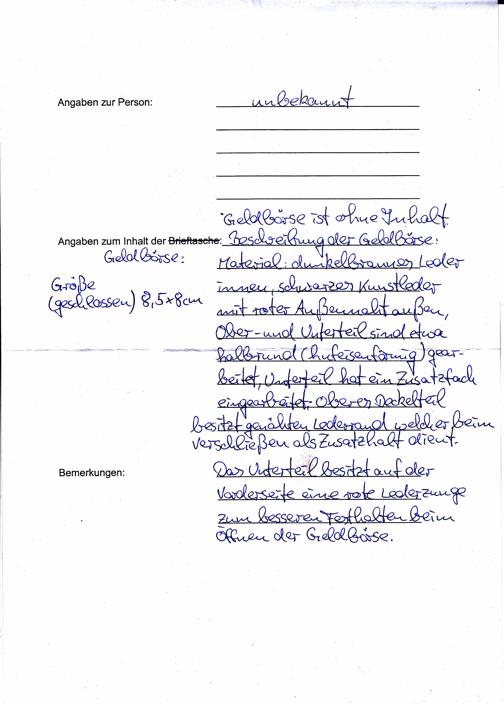 Angaben zur Person: unbekannt
Geldbörse ist ohne Inhalt
Angaben zum Inhalt der Brieftasche: Beschreibung der Geldbörse:
Geldbörse: Material: dunkelbraunes Leder
Größe innen, schwarzes Kunstleder
(geschlossen) 8,5x8cm mit roter Außennaht außen,
Ober- und Unterteil sind etwa
halbrund (hufeisenförmig) gear-
beitet, Unterteil hat ein Zusatzfach
eingearbeitet. Oberes Deckelteil
besitzt genähten Lederrand welcher beim
verschließen als Zusatzhalt dient.
Bemerkungen: Das Unterteil besitzt auf der
Vorderseite eine rote Lederzunge
zum besseren Festhalten beim
Öffnen der Geldbörse.